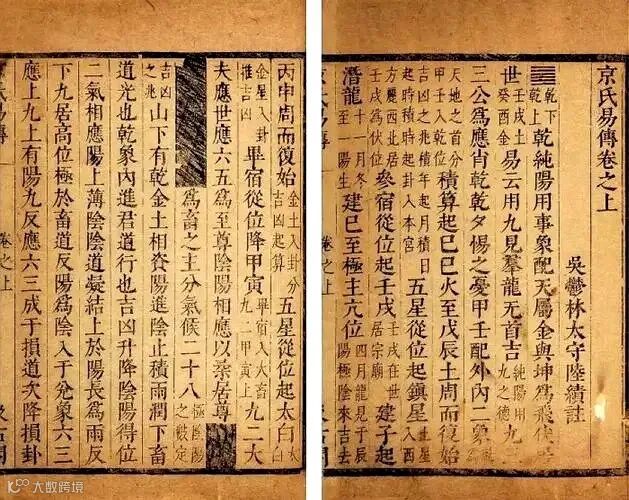 京氏易傳卷之上
吳鬱林太守陸績註
乾下乾上乾純陽用事象配天屬金與坤爲飛伏居
世壬戌土癸酉金易云用九見羣龍无首吉純陽用九之德九三
三公爲應肖乾乾夕惕之憂甲壬配外內二象
天地之首分甲壬入乾位積算起己巳火至戊辰土周而復始
吉凶之兆積年起月積日起時積時起卦入本宮五星從位起鎮星
方麗西北居壬戌爲伏位參宿從位起壬戌壬戌在世居宗廟建子起
潛龍十一月冬至一陽生建巳至極主亢位四月龍見于辰陽極陰來吉去
卷之上
丙申周而復始吉凶起算土入卦分五星從位起太白
金星入卦推吉凶畢宿從位降甲寅畢宿入大畜九二甲寅上九二大
夫應世應六五爲至尊陰陽相應以柔居尊
爲畜之主分氣候二十八極陰陽之數定
吉凶之兆山下有乾金土相資陽進陰止積雨潤下畜
道光也乾象內進君道行也吉凶升降陰陽得位
二氣相應陽上薄陰陰道凝結上於陽長爲雨反
下九居高位極於畜道反陽爲陰入于兌象六三
應上九上有陽九反應六三成于損道次降損卦
卷之上
大数跨境